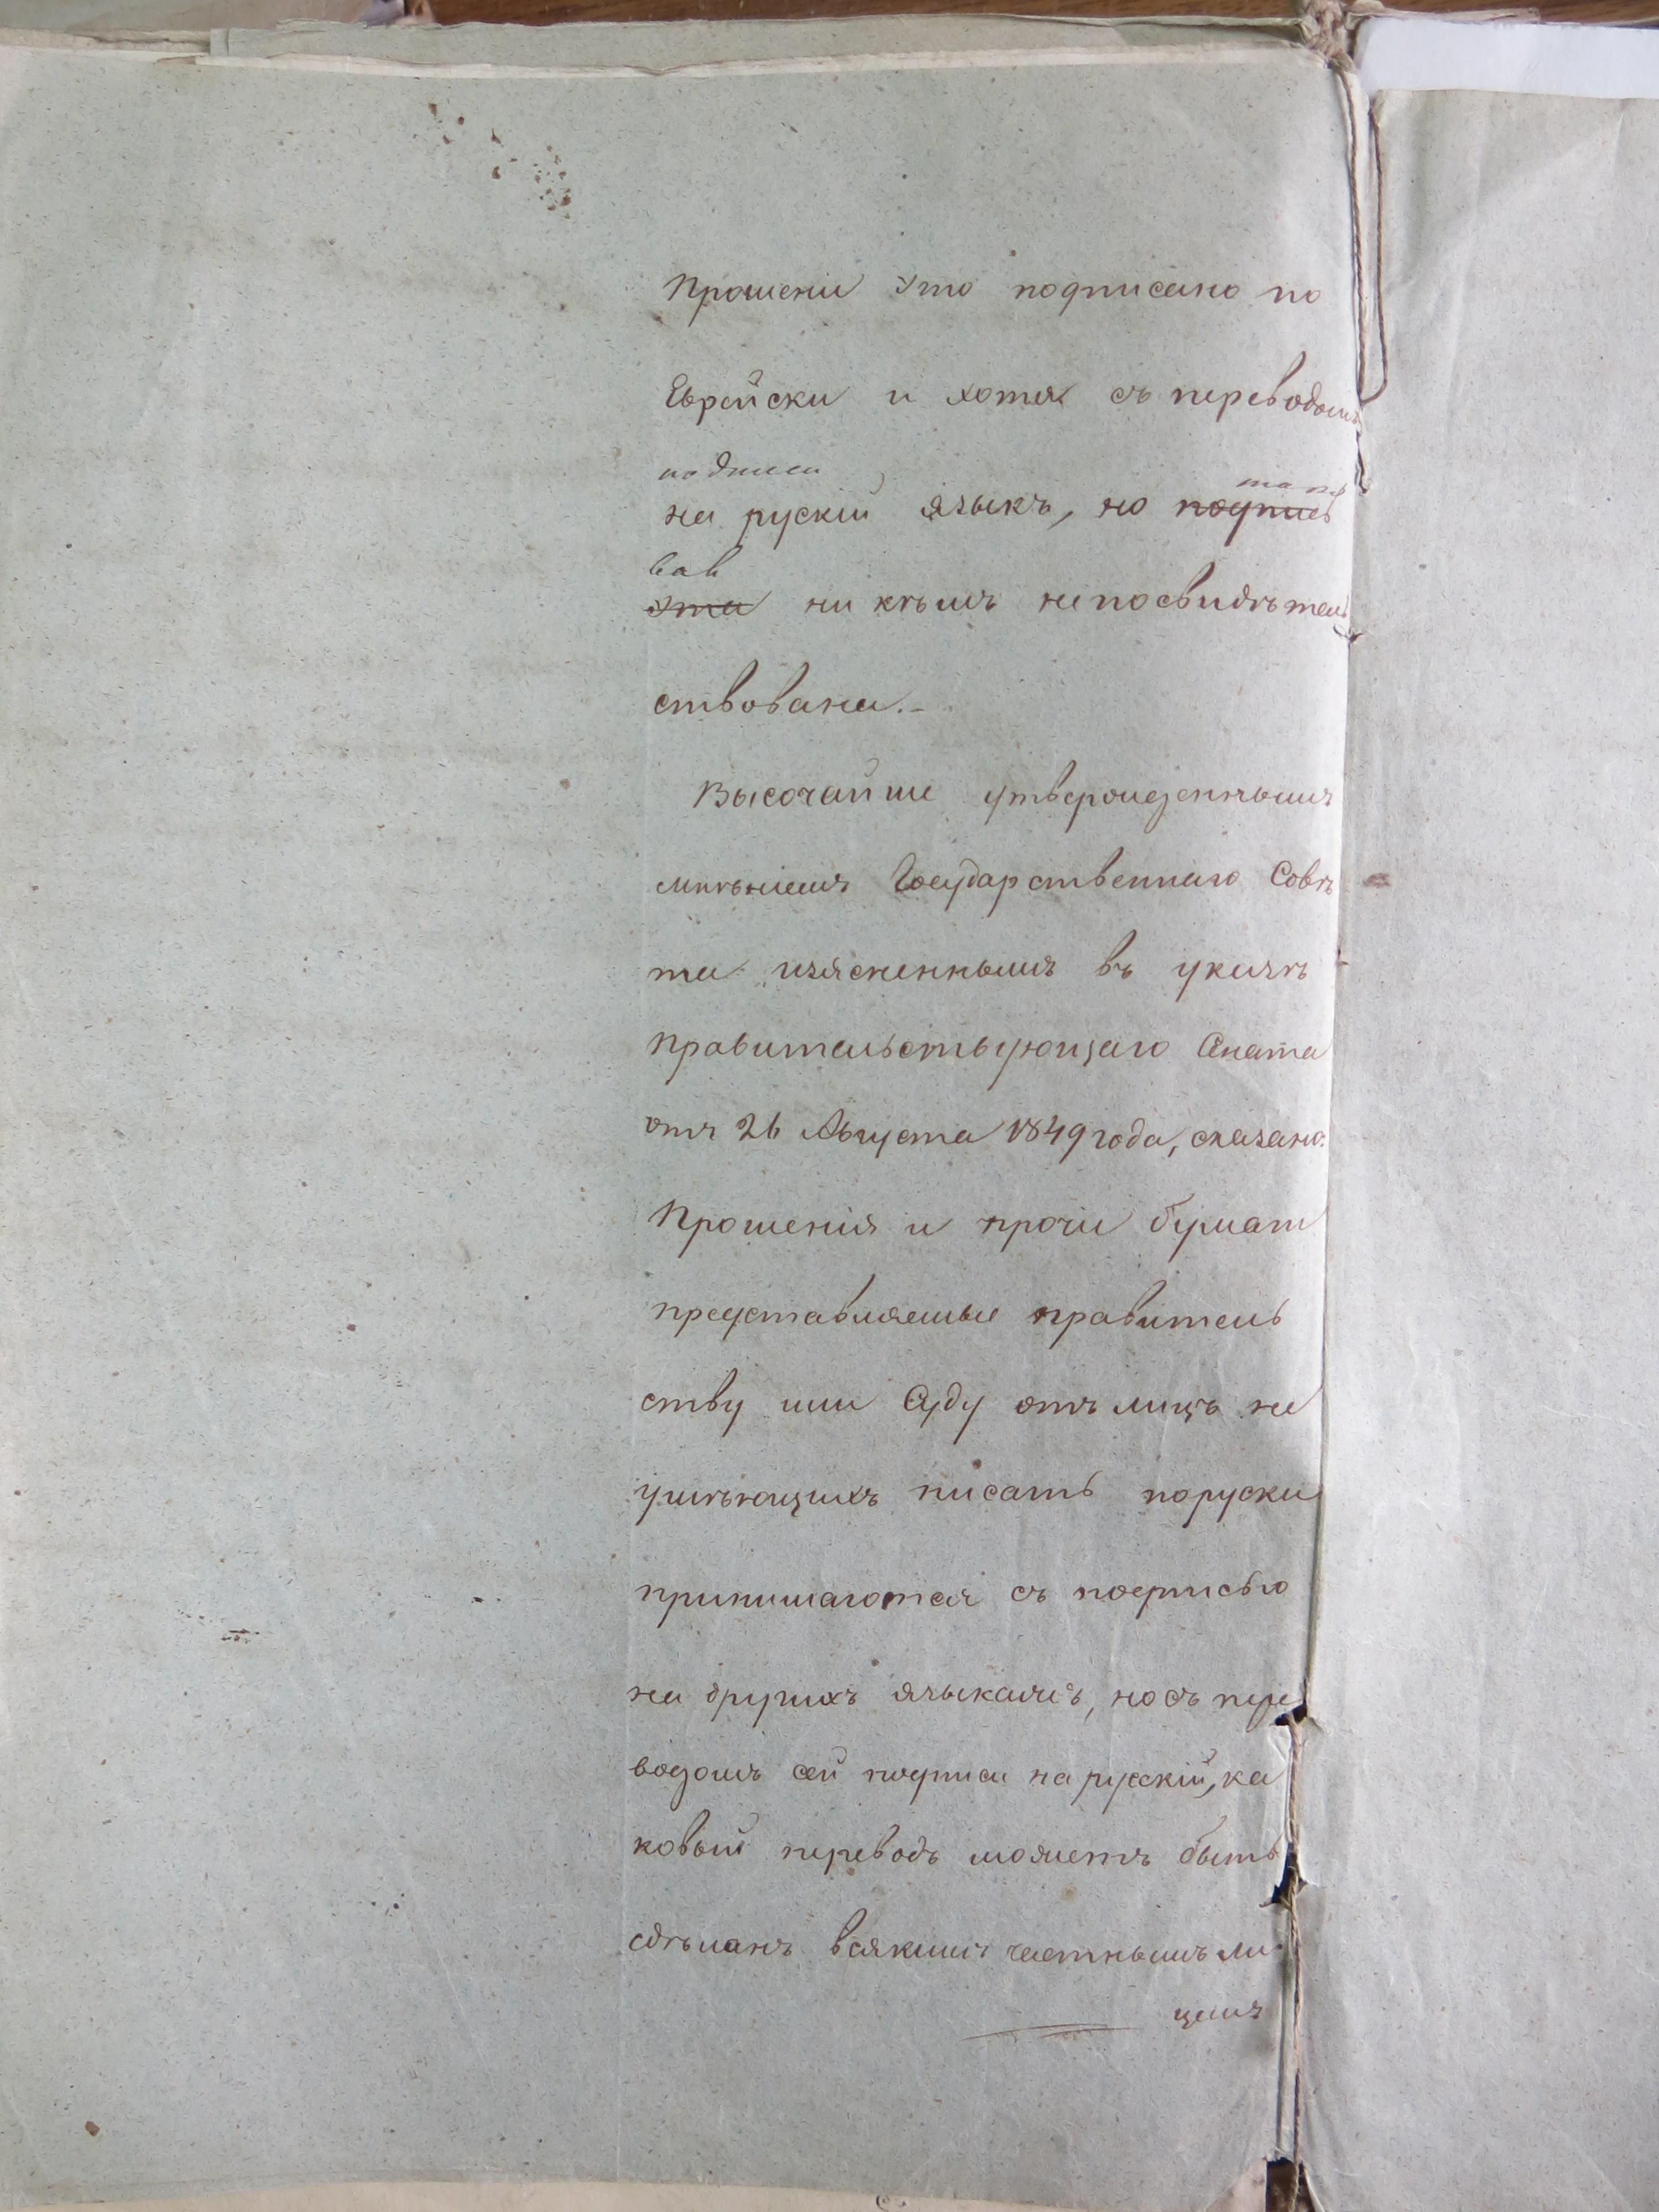 Прошеніе это подписано по
Еврейски и хотя съ переводомъ
подписи
на рускій языкъ, но подпись
тако
вая
эта ни кѣмъ не посвидѣтель
ствована.-
Высочайше утвержденнымъ
мнѣніемъ Государственнаго Совѣ
та изясненнымъ въ указѣ
правительствующаго Сената
отъ 26 Августа 1849 года, сказано:
Прошенія и прочіе бумаги
представляемые правитель
ству или Суду отъ лицъ не
умѣющихъ писать поруски
принимаются съ подписью
на другихъ языкахъ, но съ пере
водомъ сей подписи на русскій, ка
ковый переводъ можетъ быть
сдѣланъ всякимъ частнымъ ли
цемъ